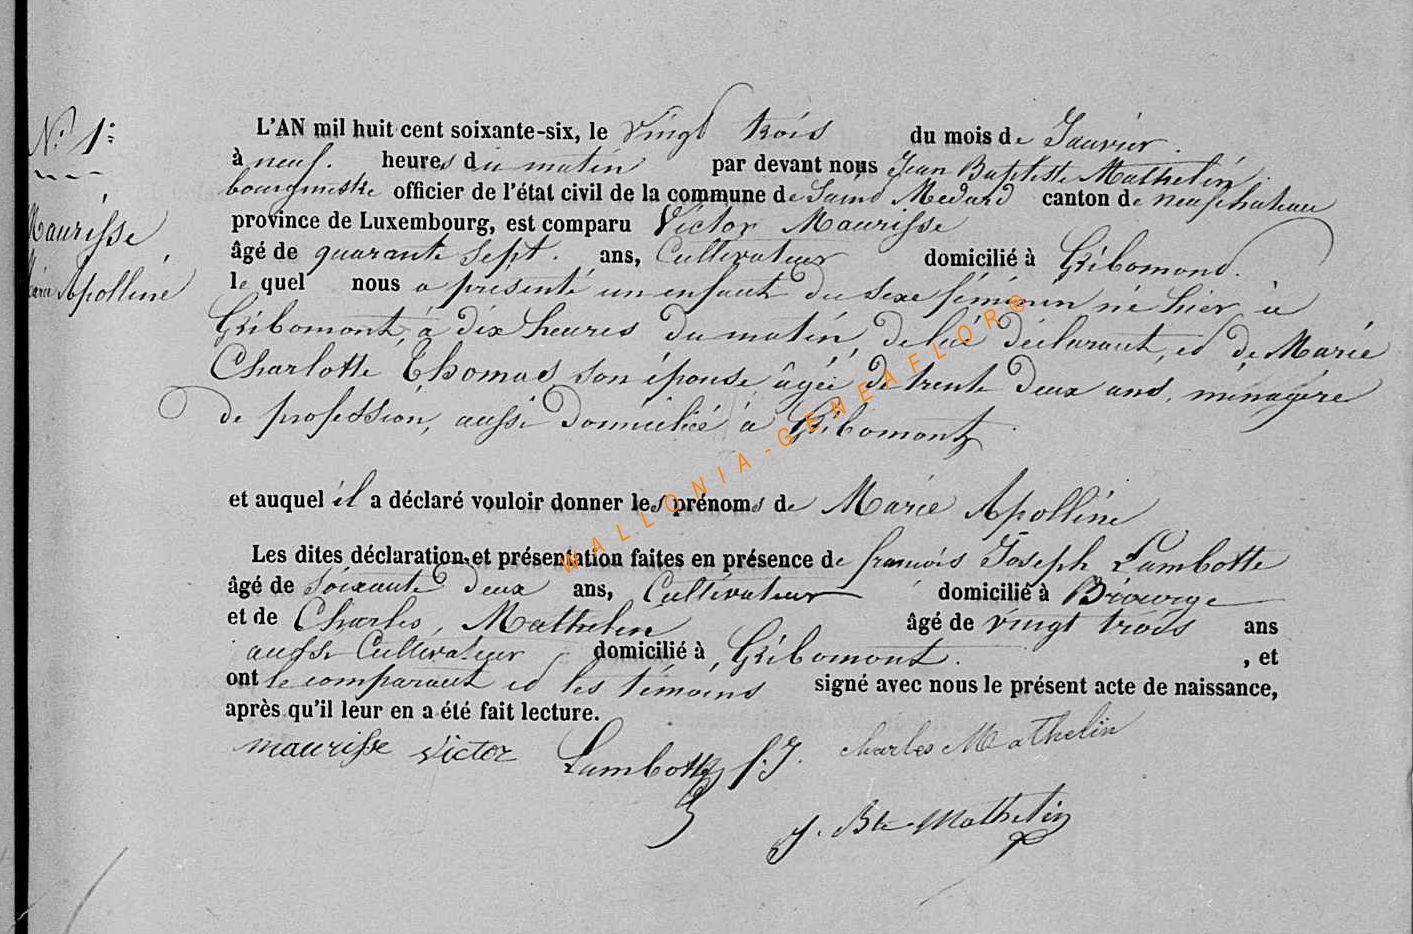 N.° 1:
Maurisse
Marie Apolline
L'AN mil huit cent soixante-six, le vingt trois du mois de Janvier.
à neuf. heures du matin par devant nous Jean Baptiste Mathelin
bourgmestre officier de l'état civil de la commune de Saint Medard canton de neufchateau
province de Luxembourg, est comparu Victor Maurisse
âgé de quarante sept. ans, Cultivateur domicilié à Gribomond.
le quel nous a présenté un enfant du sexe féminin né hier à
Gribomont, à dix heures du matin, de lui déclarant, et de Marie
Charlotte Thomas son épouse âgée de trente deux ans, ménagère
de profession, aussi domiciliée à Gribomont
et auquel il a déclaré vouloir donner les prénoms de Marie Apolline
Les dites déclaration et présentation faites en présence de francois Joseph Lambotte
âgé de soixante deux ans, Cultivateur domicilié à Biourge
et de Charles, Mathelin âgé de vingt trois ans
aussi Cultivateur domicilié à, Gribomont. , et
ont le comparant et les témoins signé avec nous le présent acte de naissance,
après qu'il leur en a été fait lecture.
maurisse victor Lambotte f. J. charles Mathelin
J. Bte Mathelin
WALLONIA-GENEAFLORE